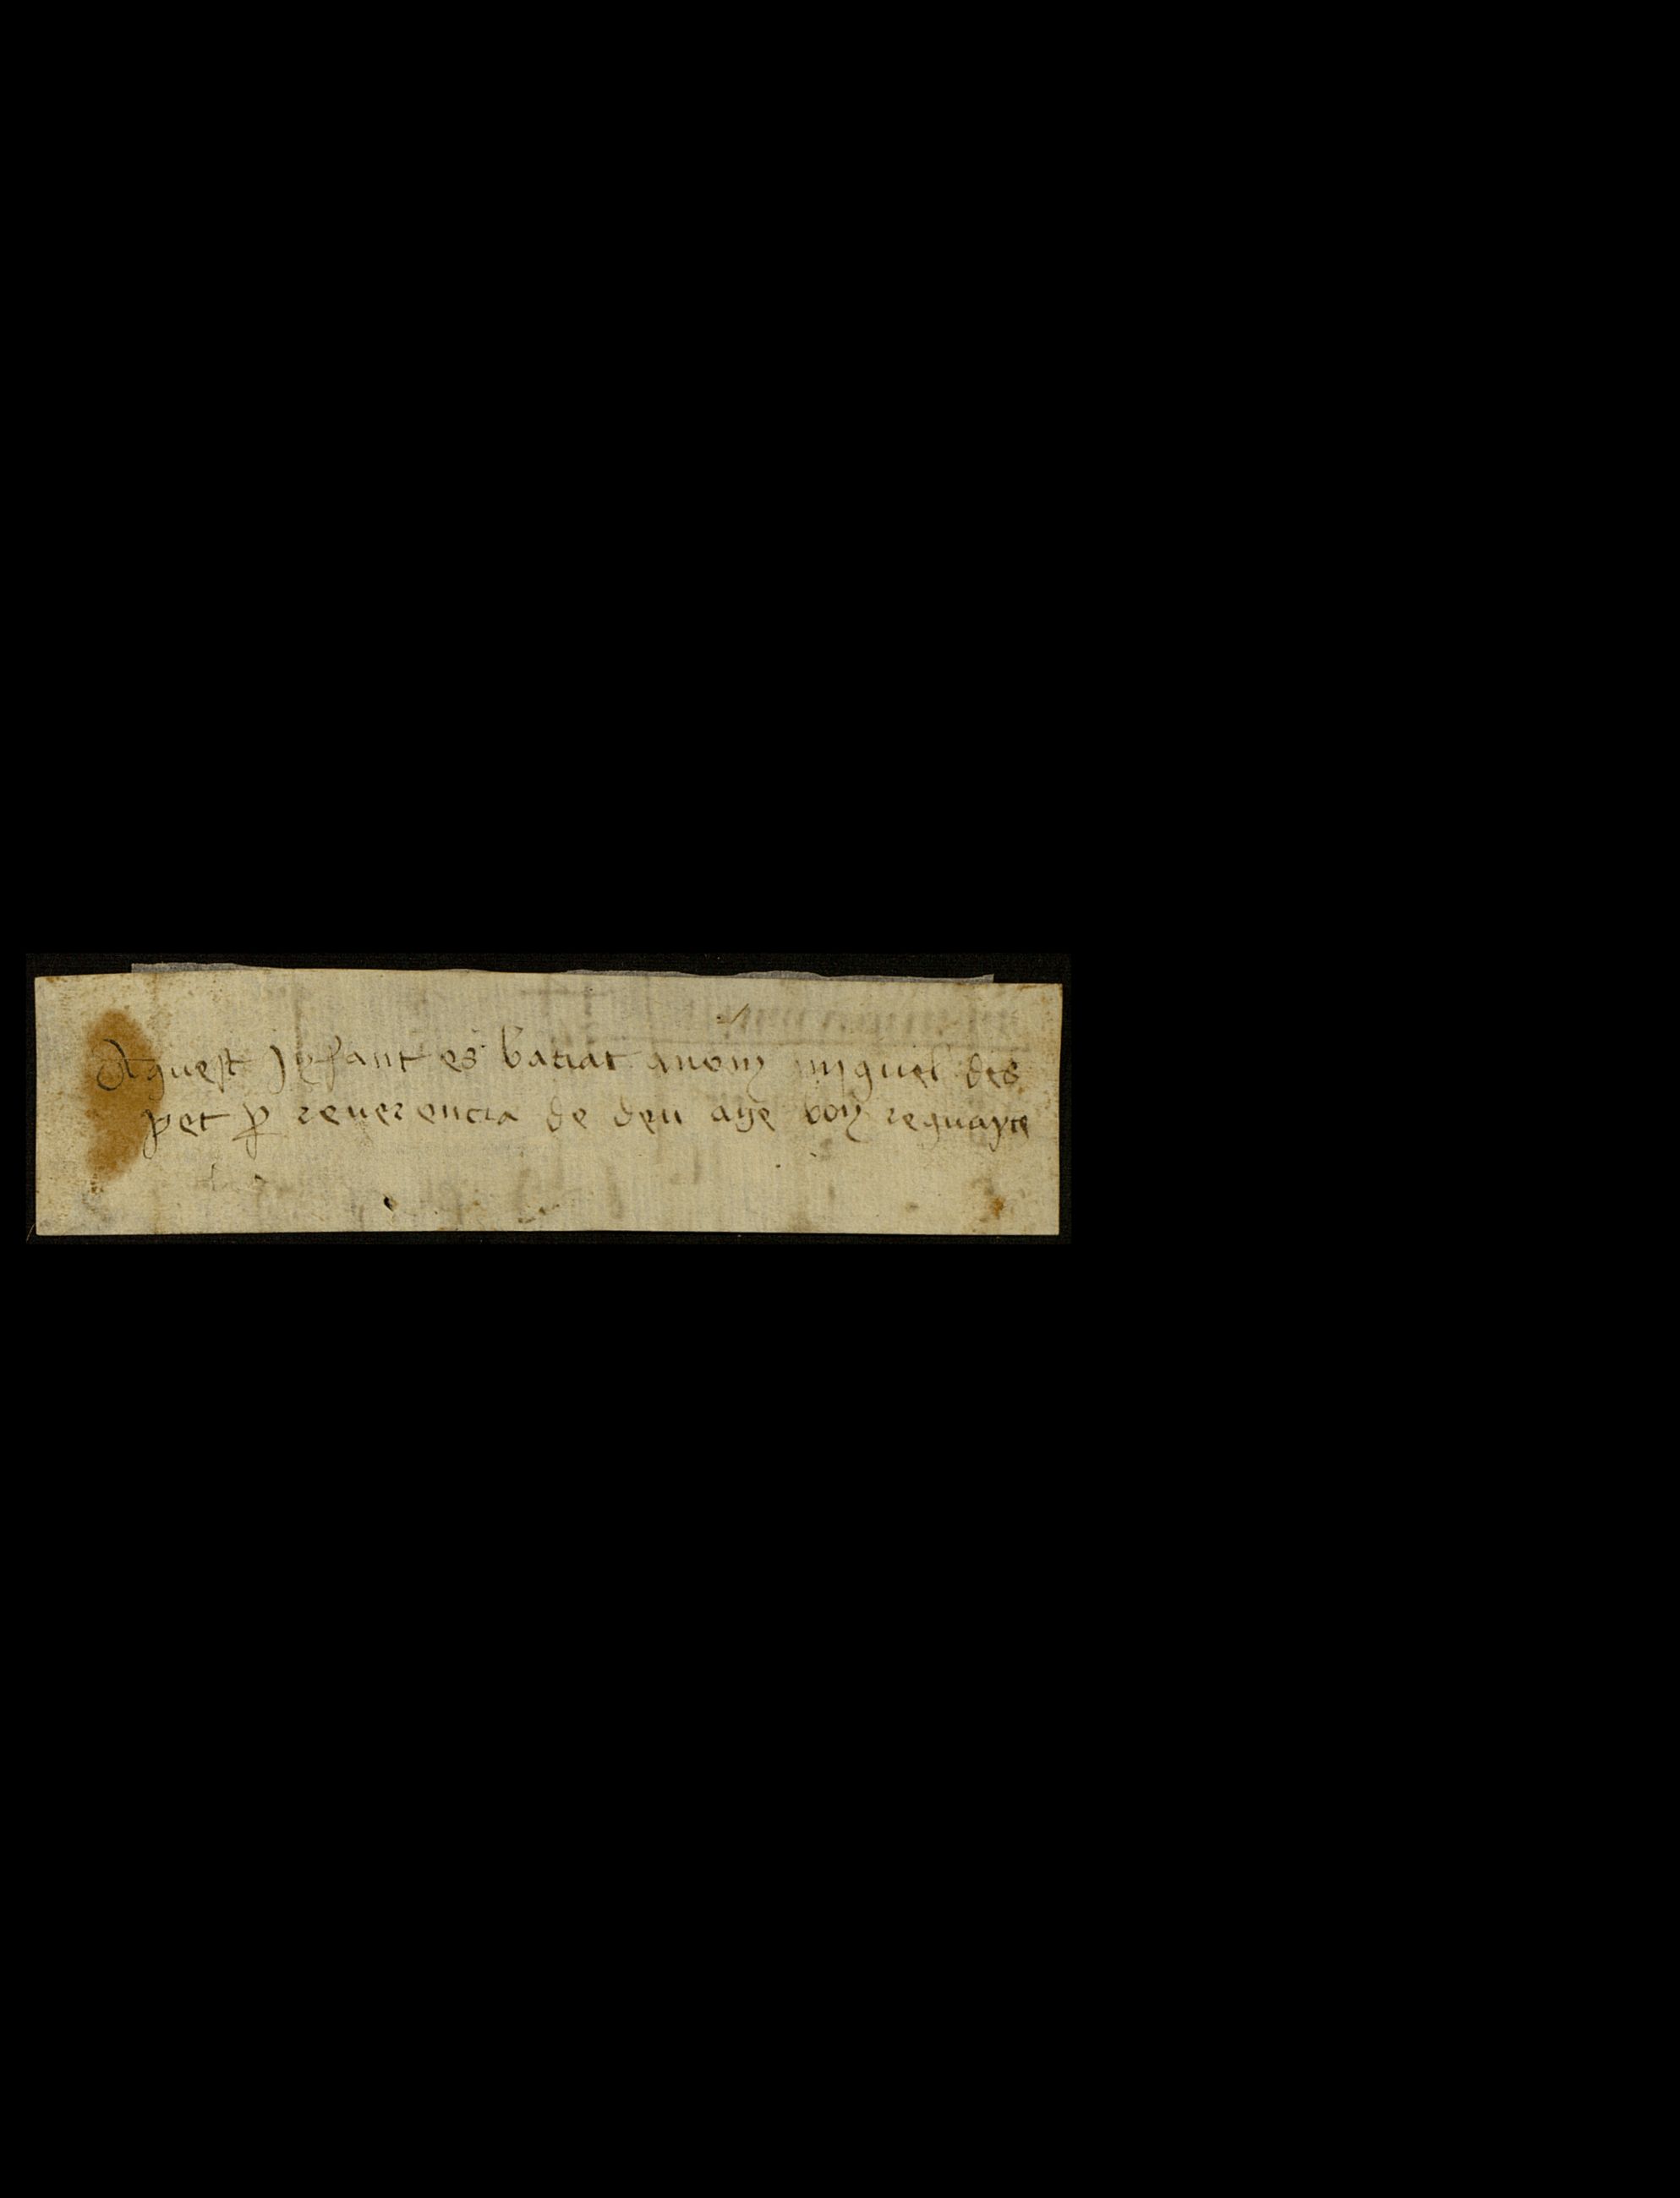 Aquest Jnfant es batiat anom miguel des
pet per reuerencia de deu aye bon reguayte